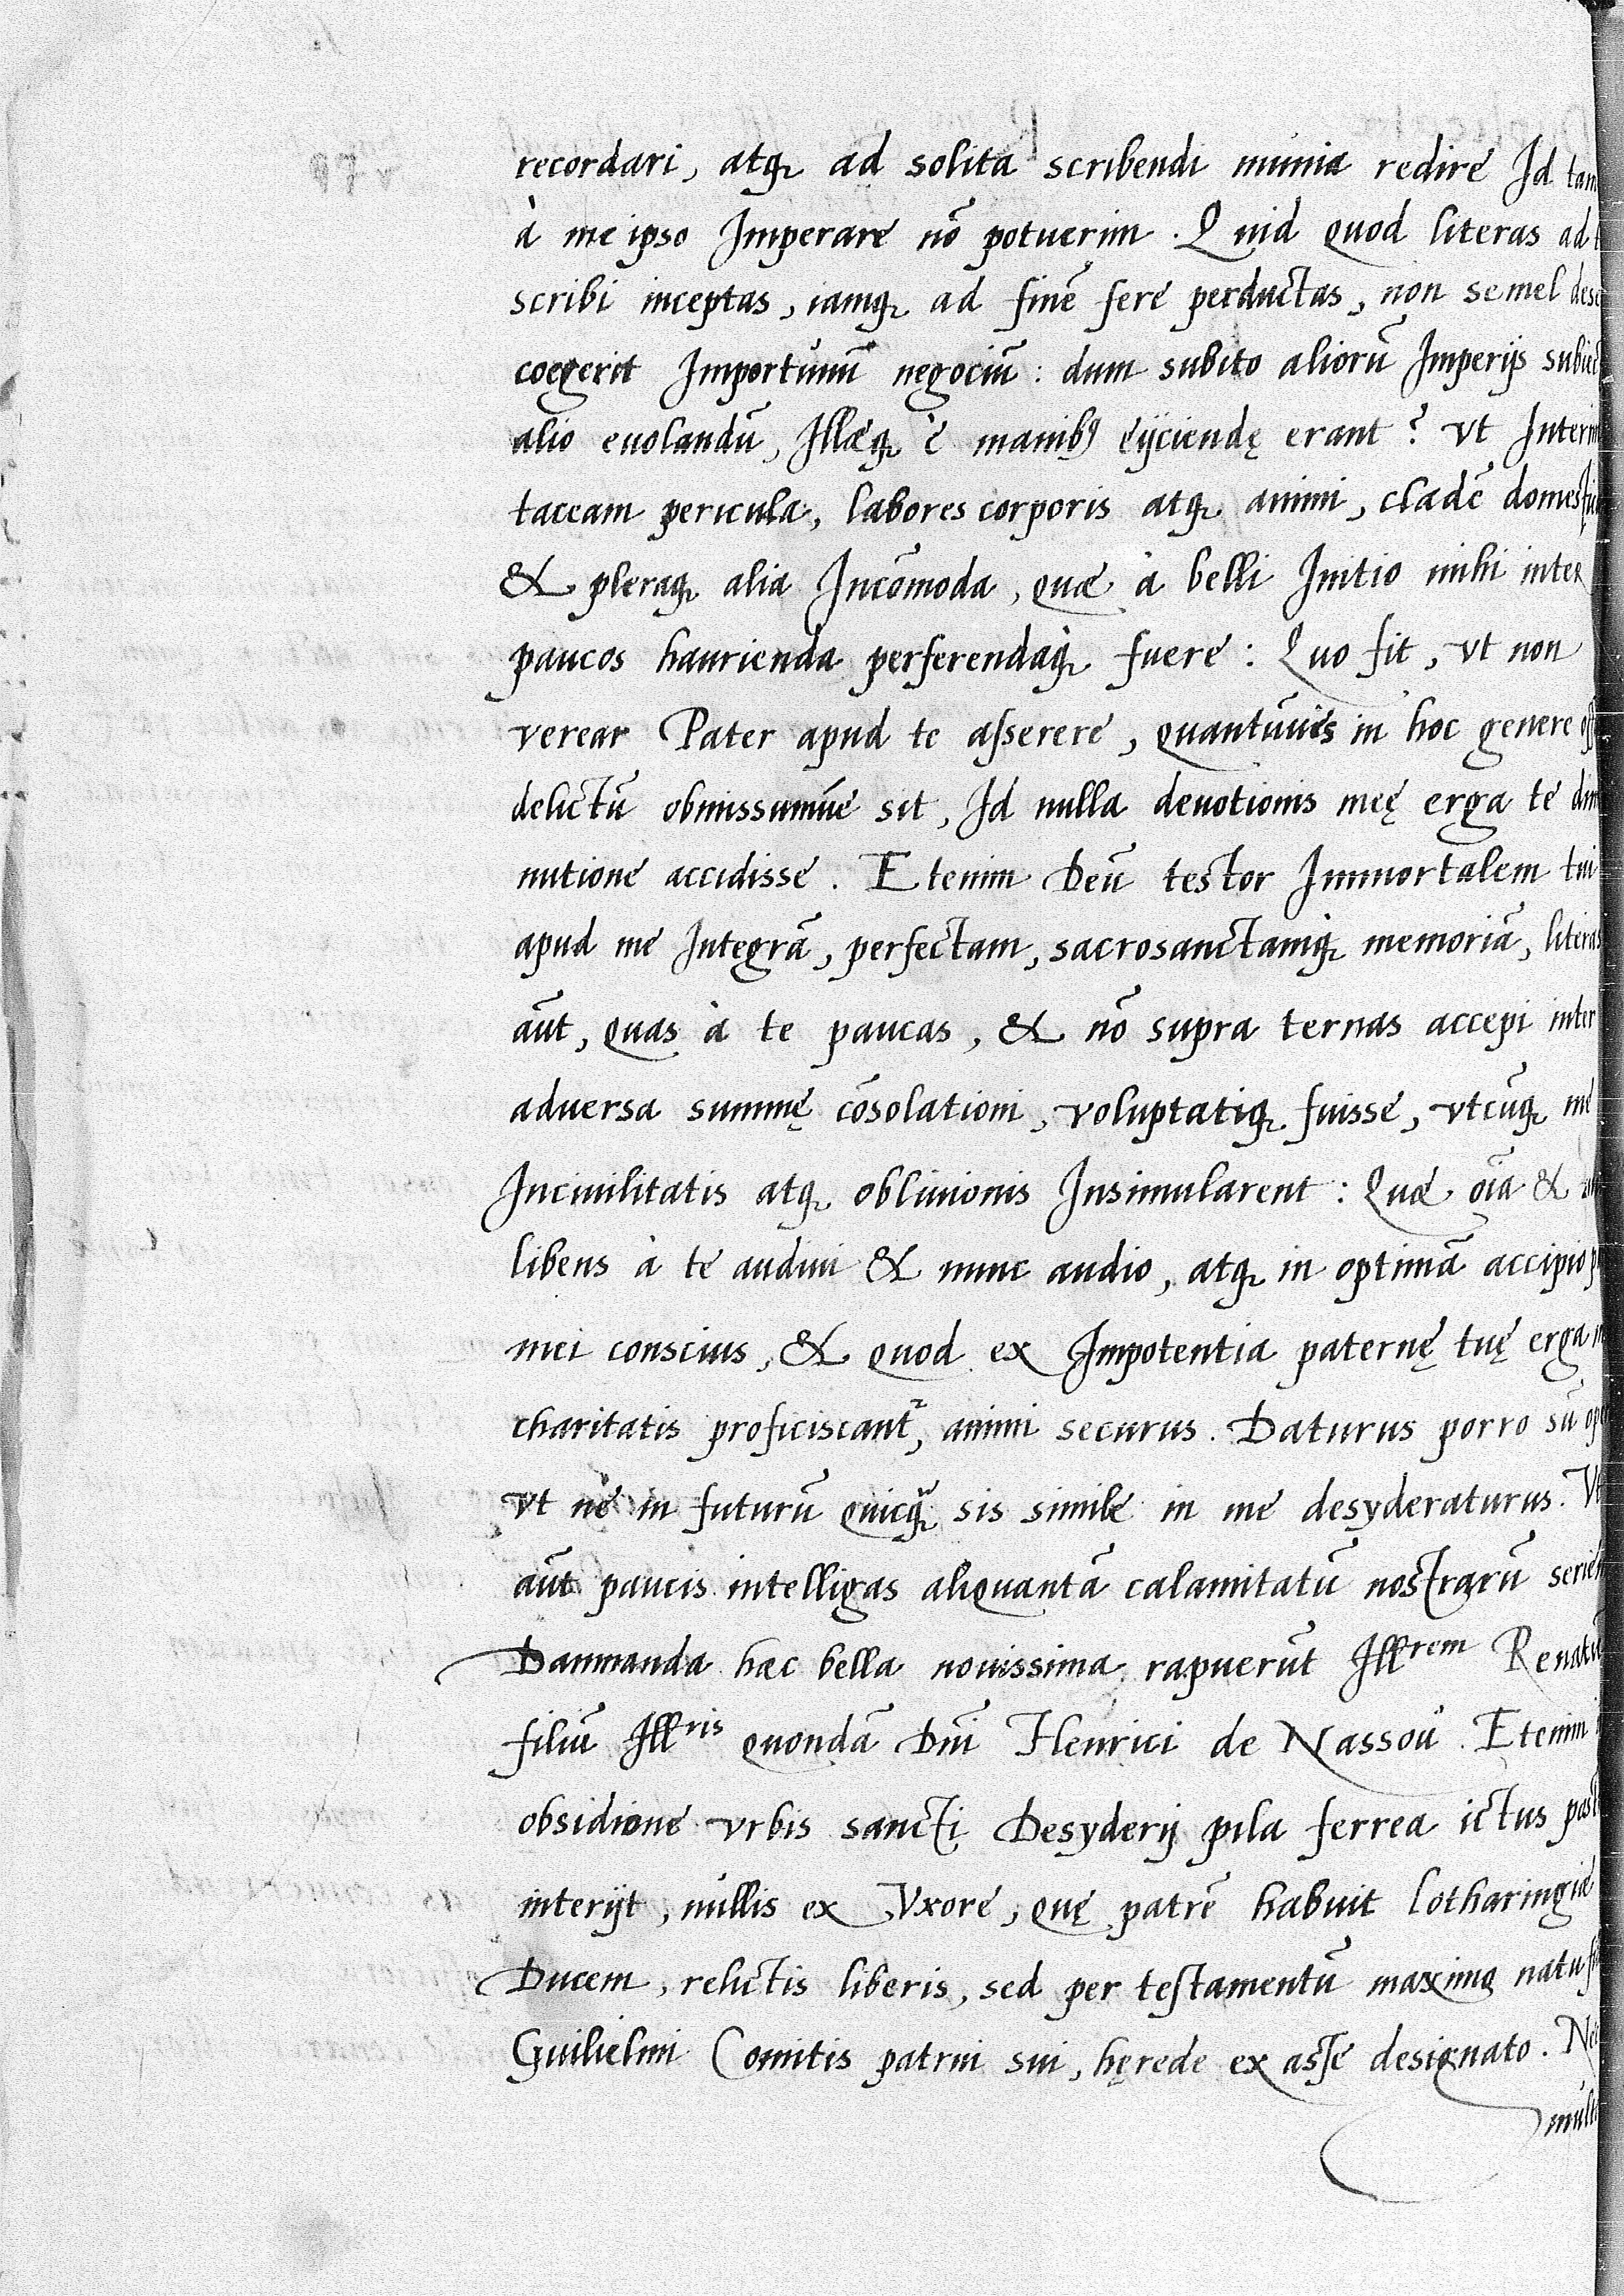 recordari, atq₃ ad solita scribendi munia redire Id tam
à me ipso Imperare nõ potuerim. Quid quod literas ad
scribi inceptas, iamq₃ ad finẽ fere perductas, non semel dese
coegerit Importunũ negociũ: dum subito aliorũ Imperijs subiec
alio euolandũ, Illæq₃ è manib⁹ eijciendę erant? Vt Interim
taceam pericula, labores corporis atq₃ animi, cladẽ domestic
& pleraq₃ alia Incõmoda, quæ à belli Initio mihi inter
paucos haurienda perferendaq₃ fuere: Quo fit, vt non
verear Pater apud te asserere, quantũuis in hoc genere
delictũ obmissumúe sit, Id nulla deuotionis meę erga te dimi
nutione accidisse. Etenim Deũ testor Immortalem tui
apud me Integrã, perfectam, sacrosanctamq₃ memoriã, literas
aũt, quas à te paucas, & nõ supra ternas accepi inter
aduersa summę cõsolationi, voluptatiq₃ fuisse, vtcũq₃ me
Inciuilitatis atq₃ obliuionis Insimularent: Quæ oĩa &
libens à te audiui & nunc audio, atq₃ in optimã accipio
mei conscius, & quod ex Impotentia paternę tuę erga m
charitatis proficiscant^r, animi securus. Daturus porro sũ ope
vt ne in futurũ quicq̃ sis simile in me desyderaturus. Vt
aũt paucis intelligas aliquantã calamitatũ nostrarũ seriẽ
Damnanda hæc bella nouissima rapuerũt Ill^rem Renatũ
filiũ Ill^ris quondã Dñi Henrici de Nassoù. Etenim
obsidione vrbis sancti Desyderij pila ferrea ictus
interijt, nullis ex Vxore, quę patrẽ habuit Lotharingiæ
Ducem, relictis liberis, sed per testamentũ maximo natu
Guilielmi Comitis patrui sui, hęrede ex asse designato. Nec
mult